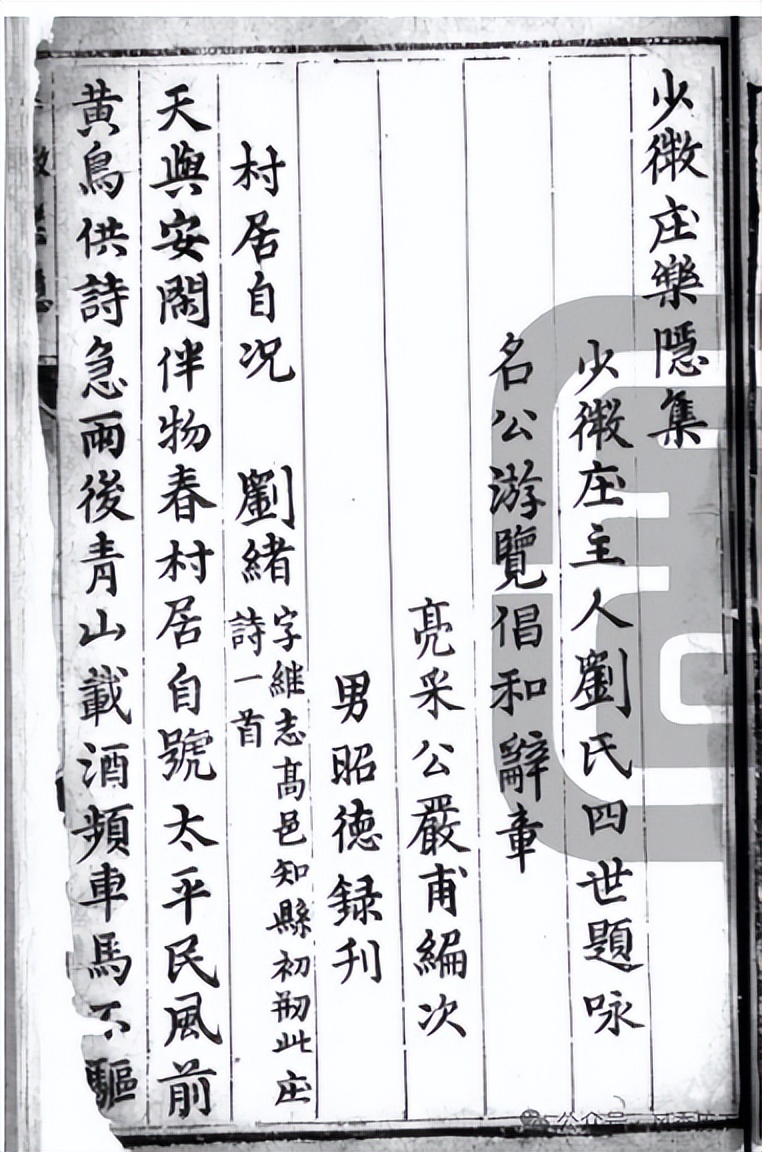 少微庄樂隱集
少微庄主人劉氏四世題咏
名公游覽倡和辭章
亮采公嚴甫編次
男昭德録刋
村居自况 劉緒 字維志髙邑知縣初刱此庄
詩一首
天與安閑伴物春村居自號太平民風前
黄鳥供詩急雨後青山載酒頻車馬不驅
公众号